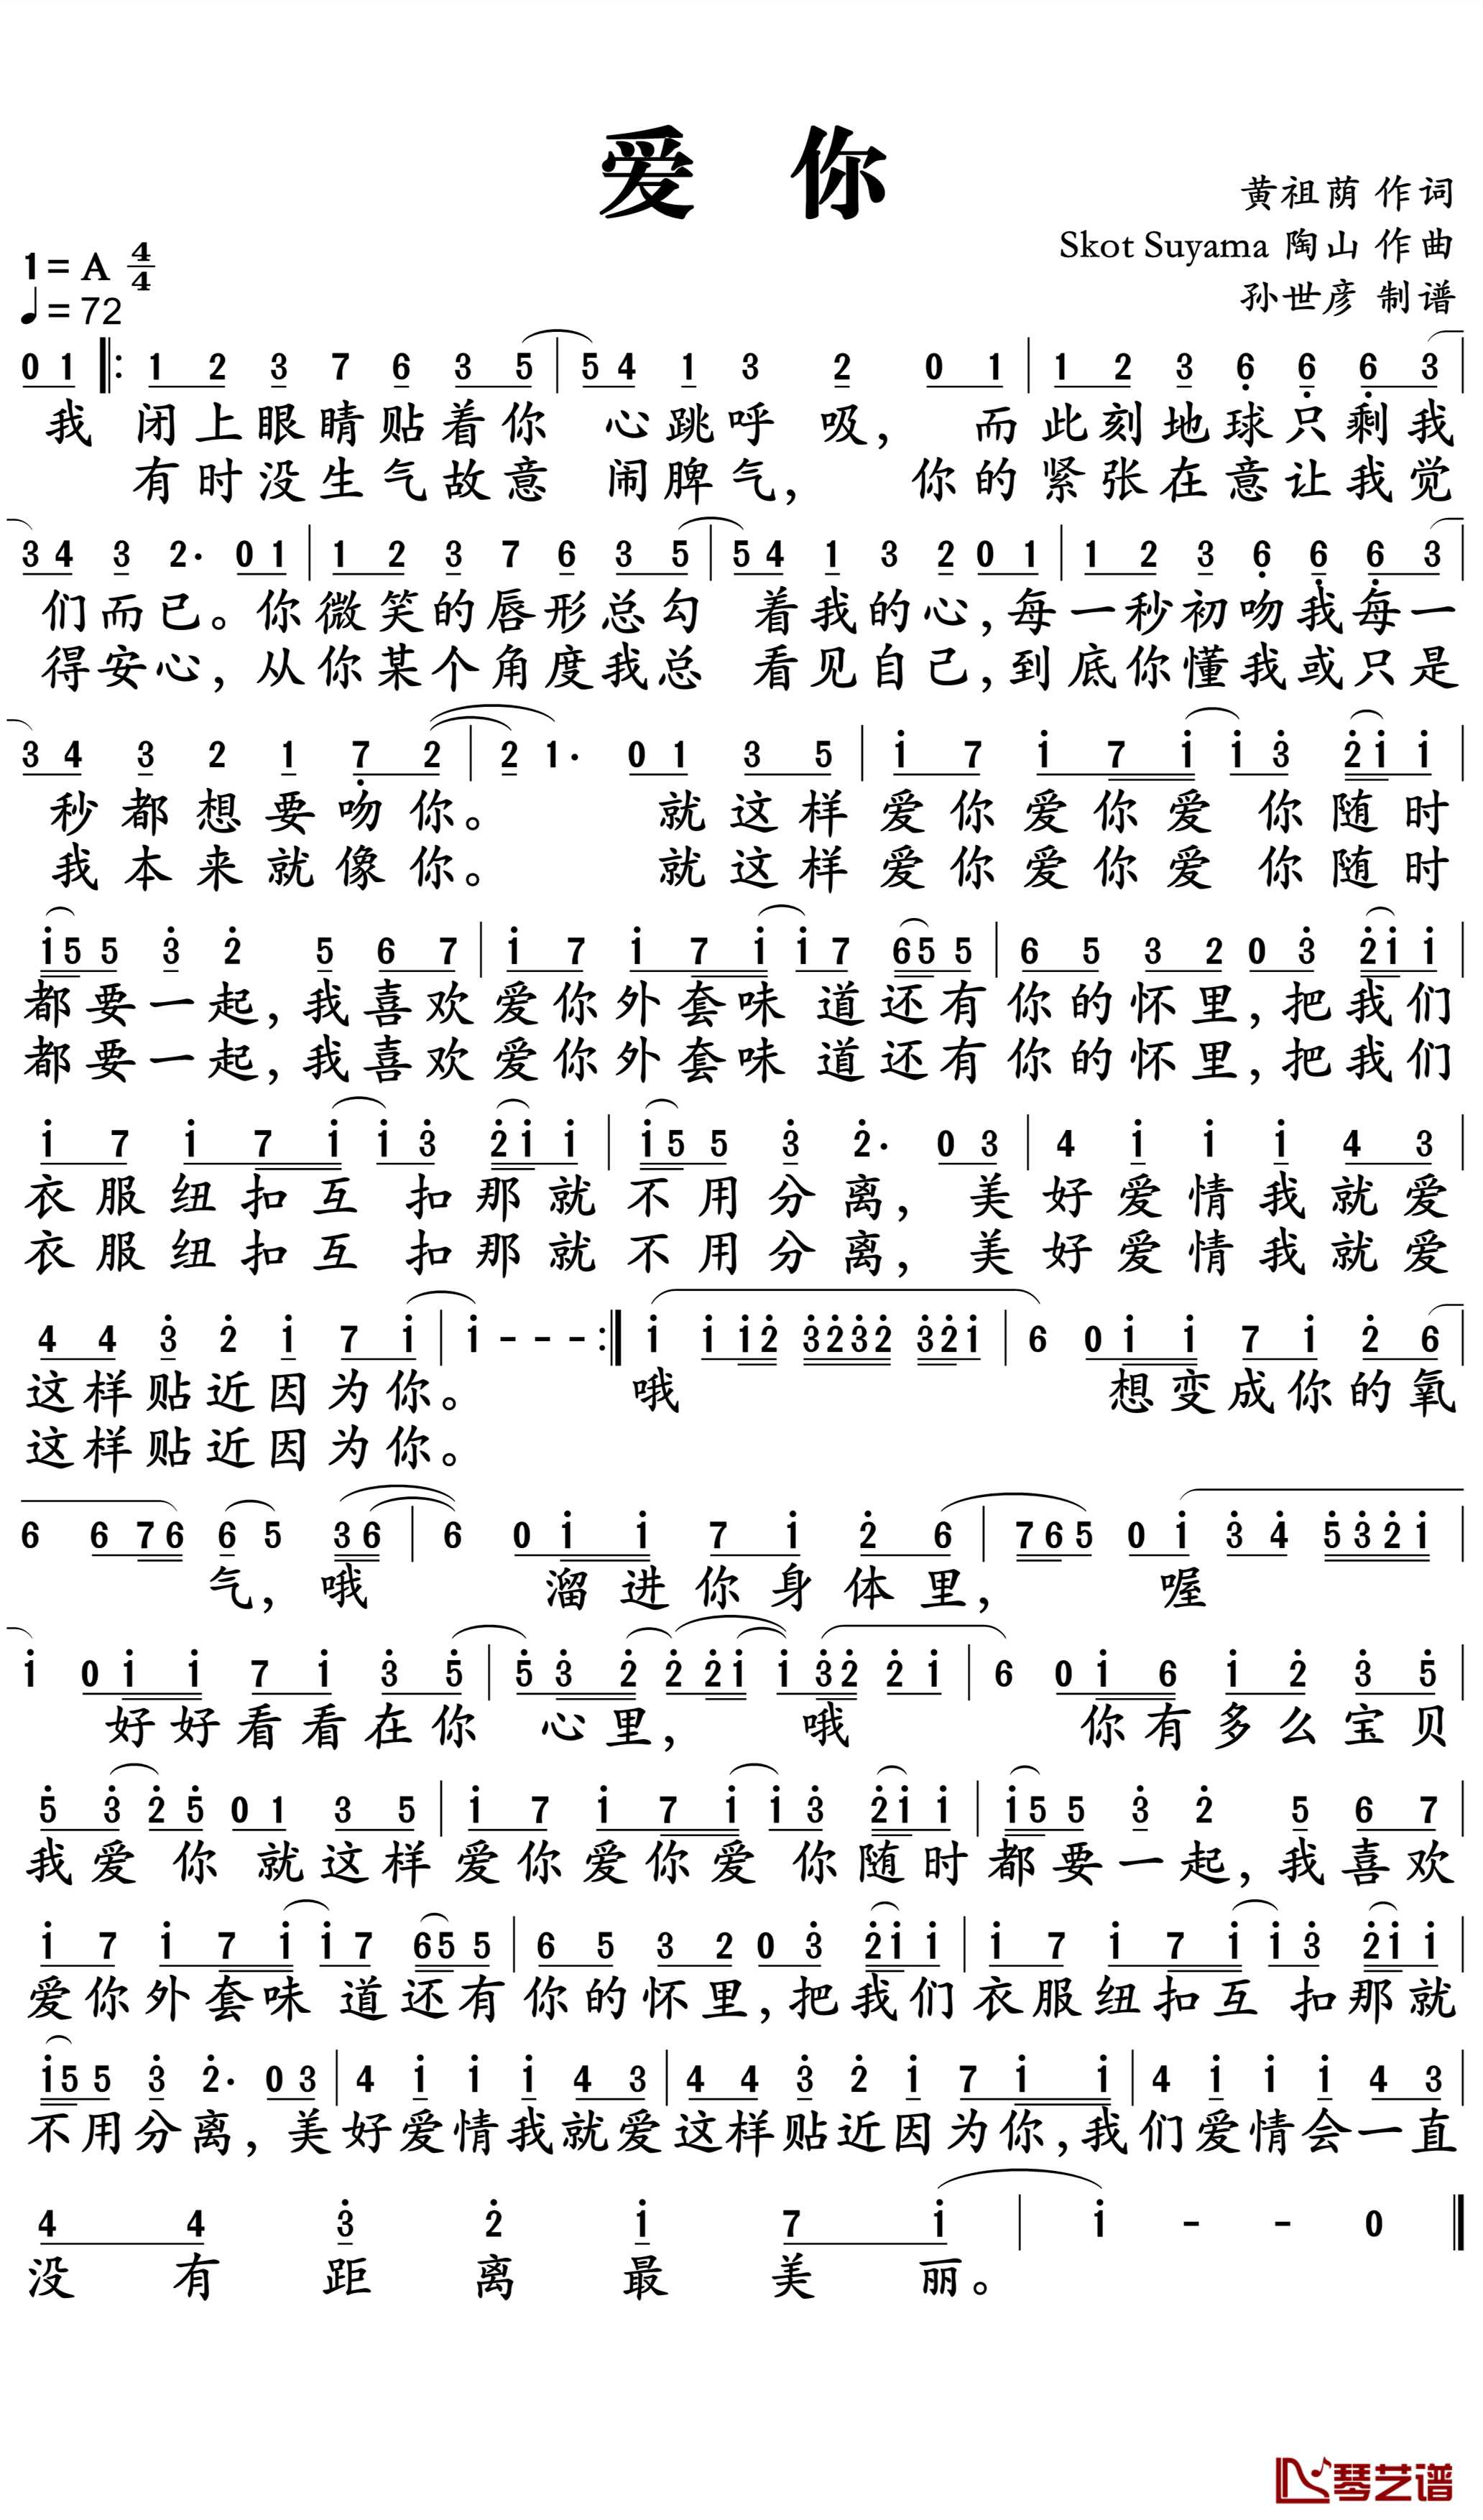 爱 你
黄祖荫 作词
Skot Suyama 陶山 作曲
孙世彦 制谱
1=A 4/4
♩=72
0 1 ‖: 1 2 3 7 6 3 5 | 5 4 1 3 2 0 1 | 1 2 3 6̣ 6̣ 6̣ 3 |
我 闭上眼睛贴着你 心跳呼 吸， 而此刻地球只剩我
有时没生气故意 闹脾气， 你的紧张在意让我觉
3 4 3 2· 0 1 | 1 2 3 7 6 3 5 | 5 4 1 3 2 0 1 | 1 2 3 6̣ 6̣ 6̣ 3 |
们而已。你微笑的唇形总勾 着我的心，每一秒初吻我每一
得安心，从你某个角度我总 看见自己，到底你懂我或只是
3 4 3 2 1 7̣ 2 | 2 1· 0 1 3 5 | 1̇ 7 1̇ 7 1̇ 1̇ 3̇ 2̇ 1̇ 1̇ |
秒都想要吻你。 就这样爱你爱你爱 你随时
我本来就像你。 就这样爱你爱你爱 你随时
1̇ 5 5 3̇ 2̇ 5 6 7 | 1̇ 7 1̇ 7 1̇ 1̇ 7 6 5 5 | 6 5 3 2 0 3̇ 2̇ 1̇ 1̇ |
都要一起，我喜欢爱你外套味 道还有你的怀里，把我们
都要一起，我喜欢爱你外套味 道还有你的怀里，把我们
1̇ 7 1̇ 7 1̇ 1̇ 3̇ 2̇ 1̇ 1̇ | 1̇ 5 5 3̇ 2̇· 0 3 | 4 1̇ 1̇ 1̇ 4 3 |
衣服纽扣互 扣那就不用分离， 美好爱情我就爱
衣服纽扣互 扣那就不用分离， 美好爱情我就爱
4 4 3̇ 2̇ 1̇ 7 1̇ | 1̇ - - - :‖ 1̇ 1̇ 1̇ 2̇ 3̇ 2̇ 3̇ 2̇ 3̇ 2̇ 1̇ | 6 0 1̇ 1̇ 7 1̇ 2̇ 6 |
这样贴近因为你。 哦 想变成你的氧
这样贴近因为你。
6 6 7 6 6 5 3 6 | 6 0 1̇ 1̇ 7 1̇ 2̇ 6 | 7 6 5 0 1̇ 3̇ 4̇ 5̇ 3̇ 2̇ 1̇ |
气，哦 溜进你身体里， 喔
1̇ 0 1̇ 1̇ 7 1̇ 3̇ 5̇ | 5̇ 3̇ 2̇ 2̇ 2̇ 1̇ 1̇ 3̇ 2̇ 2̇ 1̇ | 6 0 1̇ 6 1̇ 2̇ 3̇ 5̇ |
好好看看在你 心里， 哦 你有多么宝贝
5̇ 3̇ 2̇ 5̇ 0 1 3 5 | 1̇ 7 1̇ 7 1̇ 1̇ 3̇ 2̇ 1̇ 1̇ | 1̇ 5 5 3̇ 2̇ 5 6 7 |
我爱 你 就这样爱你爱你爱 你随时都要一起，我喜欢
1̇ 7 1̇ 7 1̇ 1̇ 7 6 5 5 | 6 5 3 2 0 3̇ 2̇ 1̇ 1̇ | 1̇ 7 1̇ 7 1̇ 1̇ 3̇ 2̇ 1̇ 1̇ |
爱你外套味 道还有你的怀里，把我们衣服纽扣互 扣那就
1̇ 5 5 3̇ 2̇· 0 3 | 4 1̇ 1̇ 1̇ 4 3 | 4 4 3̇ 2̇ 1̇ 7 1̇ 1̇ | 4 1̇ 1̇ 1̇ 4 3 |
不用分离，美好爱情我就爱这样贴近因为你，我们爱情会一直
4 4 3̇ 2̇ 1̇ 7 1̇ | 1̇ - - 0 ‖
没有距离最美丽。
琴艺谱